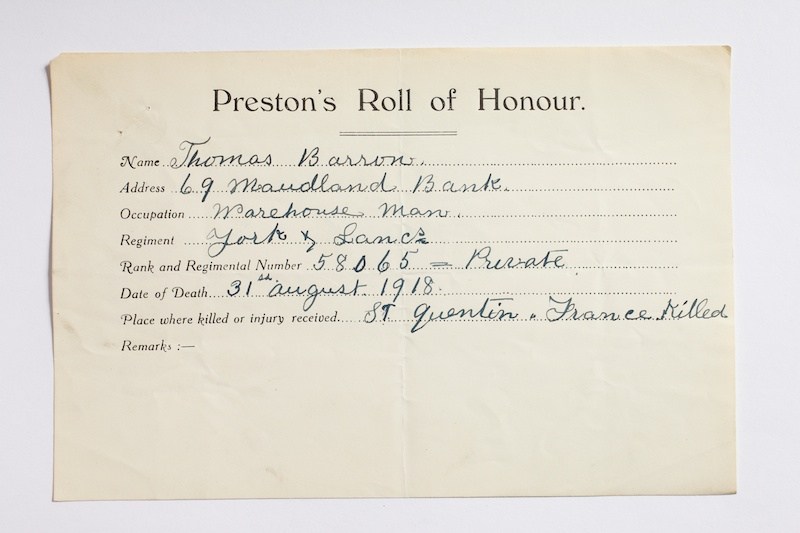 Preston's Roll of Honour.
Name Thomas Barron.
Address 69 Maudland Bank.
Occupation Warehouse Man.
Regiment York & Lancs
Rank and Regimental Number 58065 = Private
Date of Death 31st August 1918.
Place where killed or injury received. St Quentin. France. Killed
Remarks :—